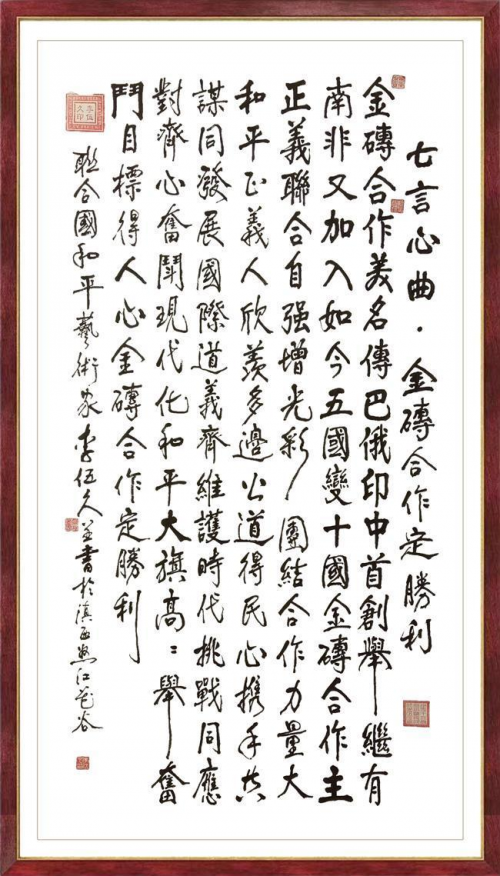 七言心曲·金磚合作定勝利
金磚合作美名傳巴俄印中首創舉繼有
南非又加入如今五國變十國金磚合作主
正義聯合自强增光彩團結合作力量大
和平正義人欣羨多邊公道得民心携手共
謀同發展國際道義齊維護時代挑戰同應
對齊心奮鬪現代化和平大旗高〻舉奮
鬥目標得人心金磚合作定勝利
聯合國和平藝術家李伍久並書於滇西怒江